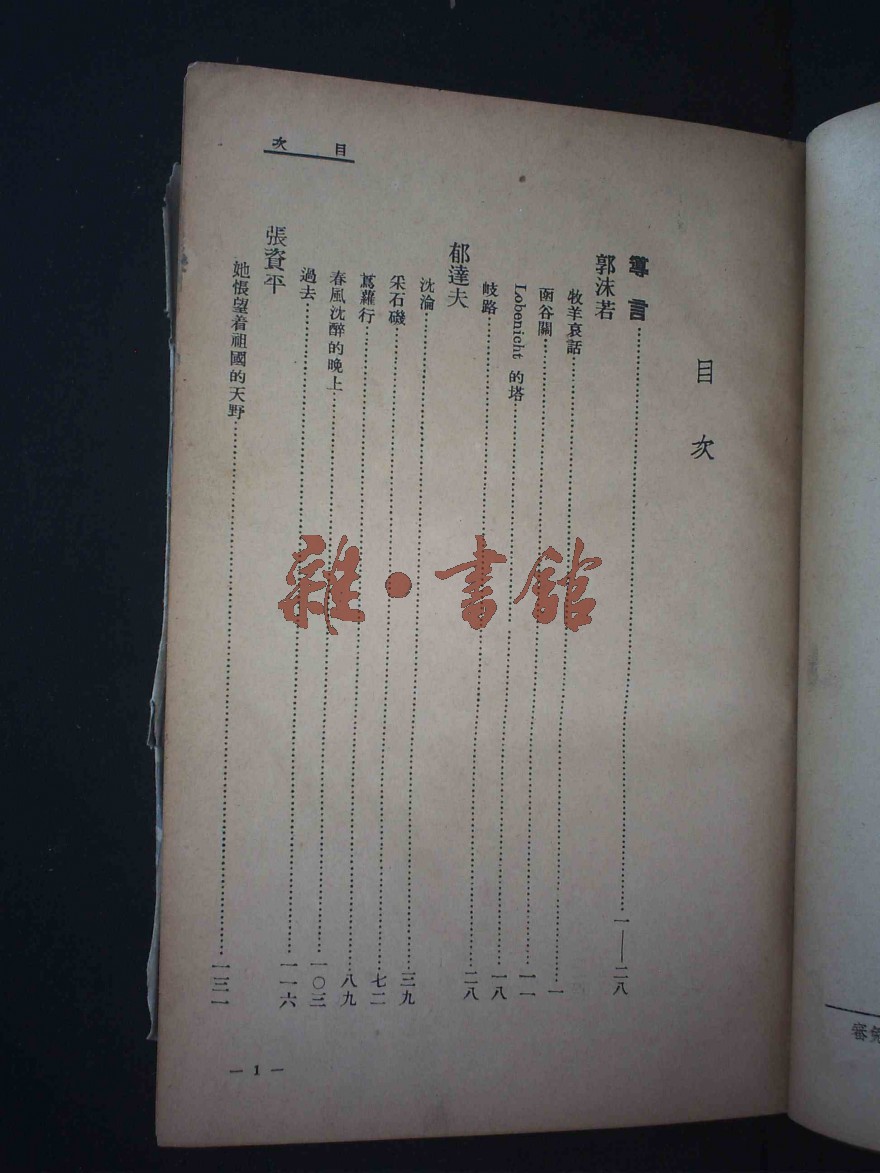 目次
目次
導言……一——二八
郭沫若
牧羊哀話……一
函谷關……一一
Lobenicht 的塔……一八
岐路……二八
郁達夫
沈淪……三九
采石磯……七二
蔦蘿行……八九
春風沈醉的晚上……一〇三
過去……一一六
張資平
她悵望着祖國的天野……一三一
— 1 —
雜·書館
審免